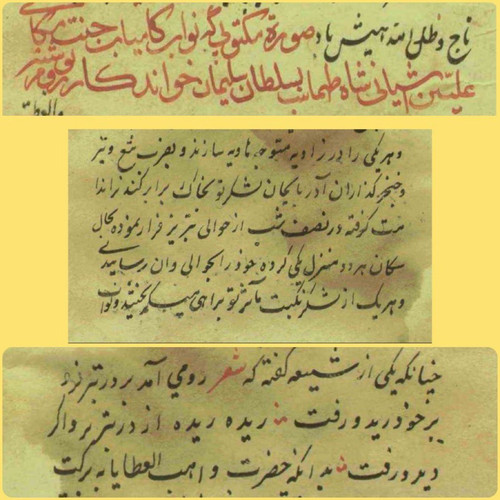 تاج و ظل الله همیش باد صورة مکتوبی که نواب کامیاب جنت مکا
علیین اشیانی شاه طهماسب بسلطان سلیمان خواندکار روم
و هر یکی را در زاویه متوجه هاویه سازند و بضرب تیغ و تبر
و خنجر کذاران آذربایجان لشکر تو بخاک برابر کنند
گرفته در نصف شب از حوالی تبریز فرار نموده
مکان هر دو منزل یکی کرده خود را بحوالی وان رسانیدی
و هر یک از لشکر نکبت مآثر تو براهی
چنانکه یکی از شیعه گفته که شعر رومی آمد بر در تبریز
بر خود رید و رفت ریده ریده از در تبریز واکر
دید و رفت بدانکه حضرت واهب العطایا نه برکت